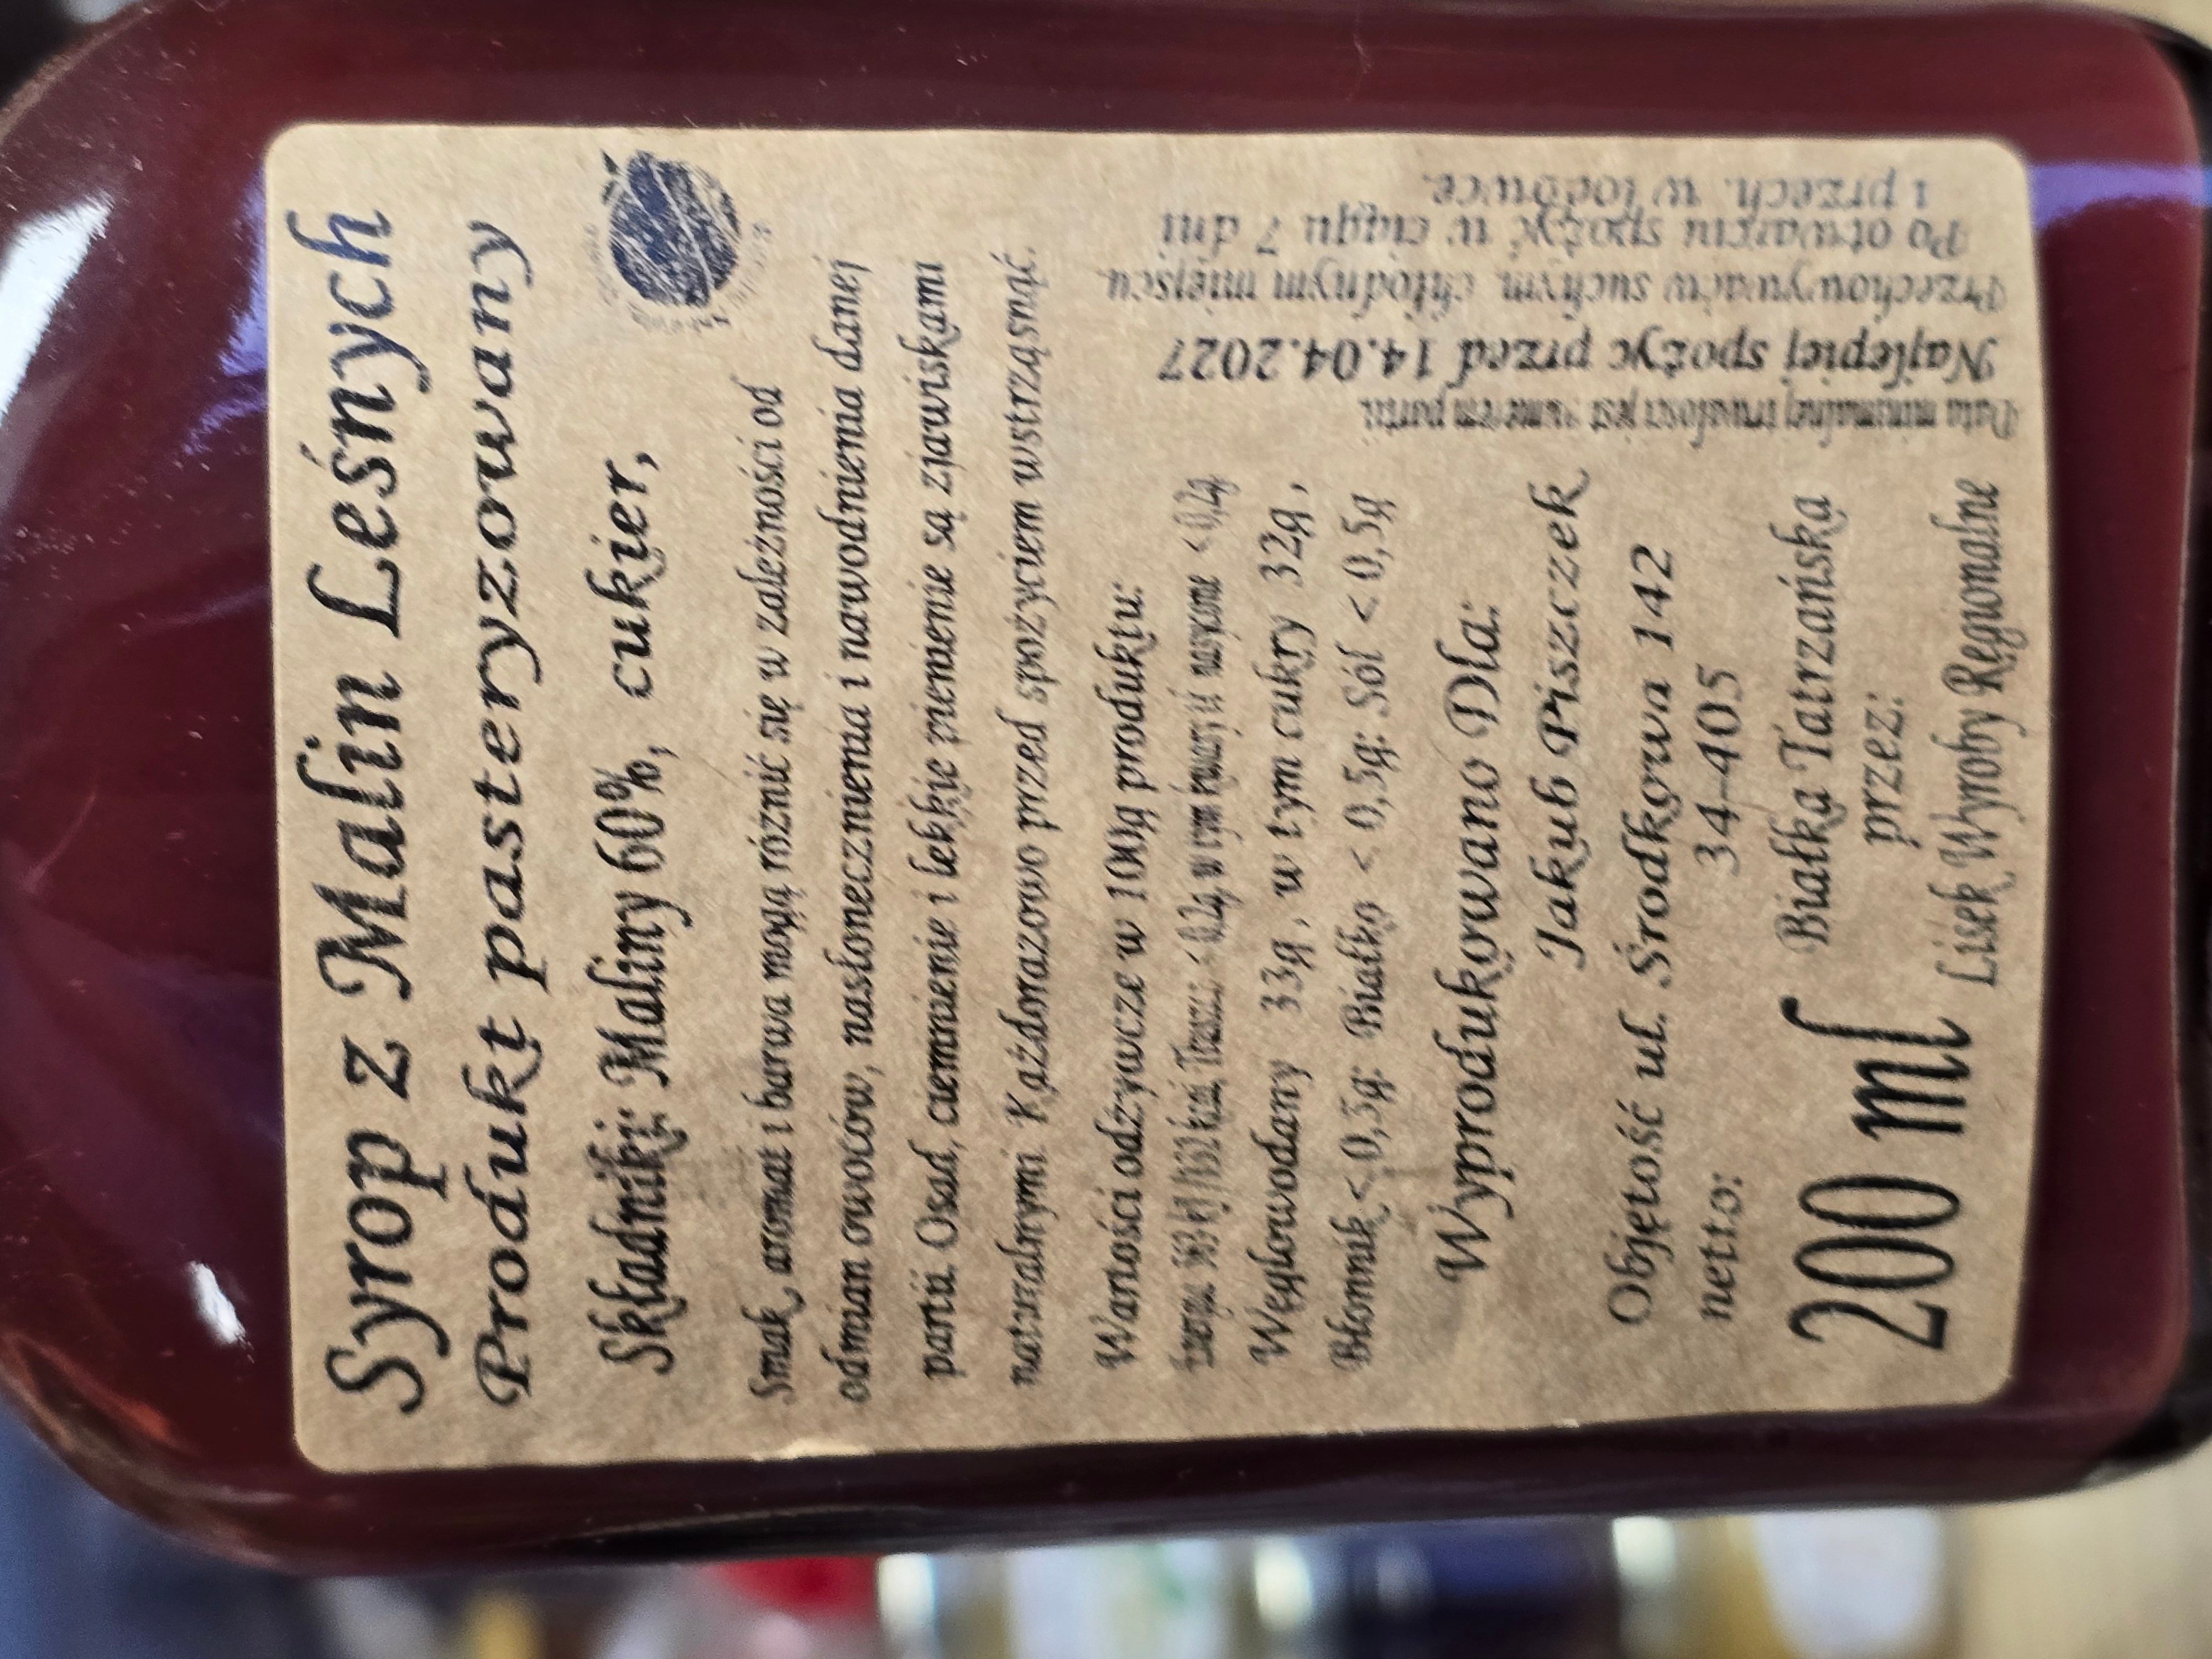 Syrop z Malin Leśnych
Produkt pasteryzowany
Składniki: Maliny 60%, cukier,
Smak, aromat i barwa mogą różnić się w zależności od
odmian owoców, nasłonecznienia i nawodnienia danej
partii. Osad, ciemnienie i lekkie pienienie są zjawiskami
naturalnymi Każdorazowo przed spożyciem wstrząsnąć.
Wartości odżywcze w 100g produktu:
Tłuszcz < 0,2g, w tym kwasy tł nasycone < 0,2g
Węglowodany 33g, w tym cukry 32g,
Błonnik < 0,5g: Białko < 0,5g: Sól < 0,5g
Wyprodukowano Dla:
Jakub Piszczek
ul. Środkowa 142
34-405
Białka Tatrzańska
przez:
Lisek Wyroby Regionalne
Objętość
netto:
200 ml
Data minimalnej trwałości jest numerem partii.
Najlepiej spożyć przed 14.04.2027
Przechowywać w suchym, chłodnym miejscu
Po otwarciu spożyć w ciągu 7 dni
i przech. w lodówce.